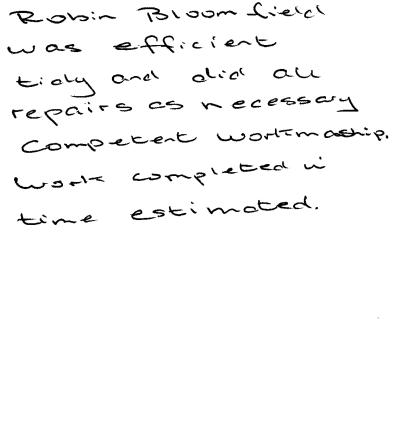 Robin Bloomfield
was efficient
tidy and did all
repairs as necessary
Competent workmaship.
Work completed in
time estimated.